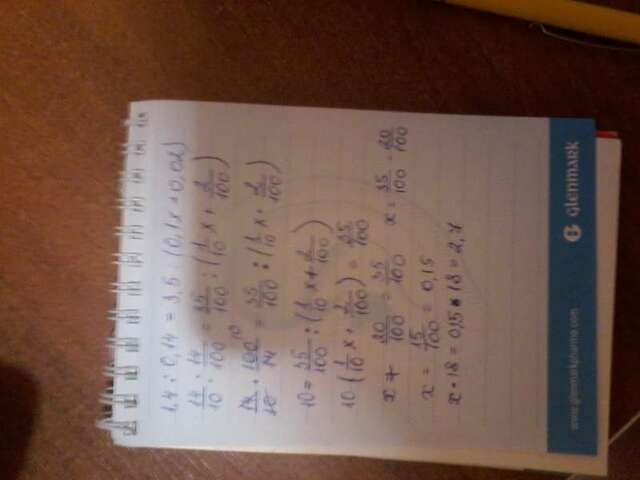 1,4 : 0,14 = 3,5 : (0,1x + 0,02)
14/10 : 14/100 = 35/100 : (1/10 x + 2/100)
14/10 · 100/14 10 = 35/100 : (1/10 x + 2/100)
10 = 35/100 : (1/10 x + 2/100)
10 (1/10 x + 2/100) = 35/100
x + 20/100 = 35/100 x = 35/100 - 20/100
x = 15/100 = 0,15
x · 18 = 0,15 · 18 = 2,7
www.glenmarkpharma.com G Glenmark